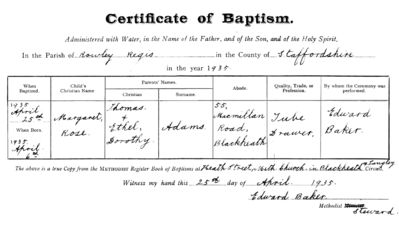 Certificate of Baptism.
Administered with Water, in the Name of the Father, and of the Son, and of the Holy Spirit,
In the Parish of Rowley Regis in the County of Staffordshire
in the year 1935
When Baptized. Child's Christian Name Parents' Names. Christian Surname. Abode. Quality, Trade, or Profession. By whom the Ceremony was performed.
1935 April 25th
When Born.
1935 April
Margaret, Rose.
Thomas. + Ethel, Dorothy
Adams.
55, Macmillan Road, Blackheath
Tube Drawer,
Edward Baker.
The above is a true Copy from the METHODIST Register Book of Baptisms at Heath Street, Meth Church. in Blackheath & Langley Circuit
Witness my hand this 25th day of April. 1935.
Edward Baker.
Methodist
Steward.